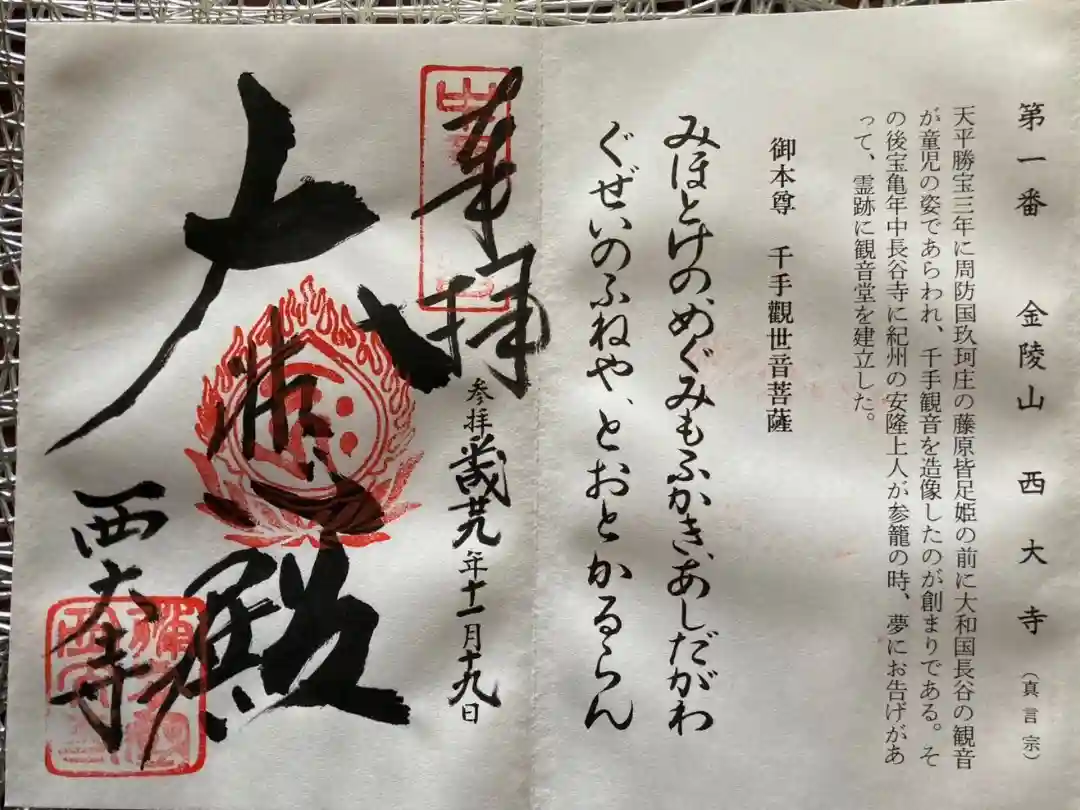 第一番 金陵山 西大寺 (真言宗)
天平勝宝三年に周防国玖珂庄の藤原皆足姫の前に大和国長谷の観音
が童児の姿であらわれ、千手観音を造像したのが創まりである。そ
の後宝亀年中長谷寺に紀州の安隆上人が参籠の時、夢にお告げがあ
って、霊跡に観音堂を建立した。
御本尊 千手觀世音菩薩
みほとけの、めぐみもふかき、あしだがわ
ぐぜいのふねや、とおとかるらん
奉拝
参拝 年十一月十九日
大悲殿
西大寺